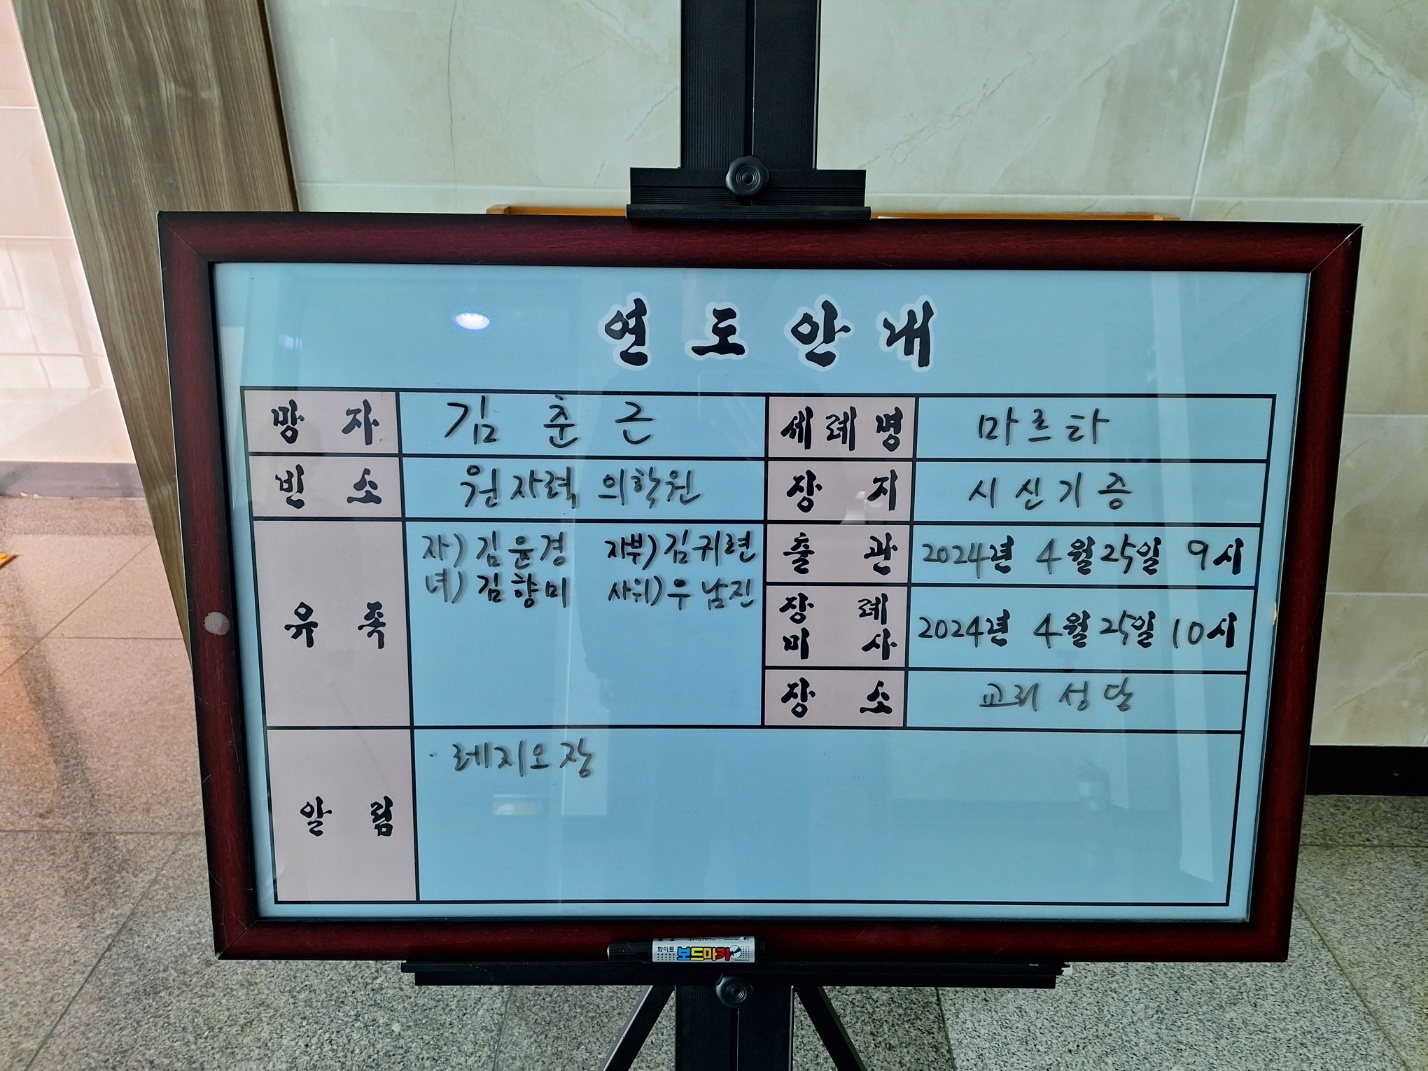 연도안내
망자 김춘근 세례명 마르타
빈소 원자력 의학원 장지 시신기증
유족 자) 김윤경 자부) 김귀련
녀) 김향미 사위) 우남진
출관 2024년 4월 25일 9시
장례미사 2024년 4월 25일 10시
장소 교리성당
알림 · 레지오장
화이트
보드마카